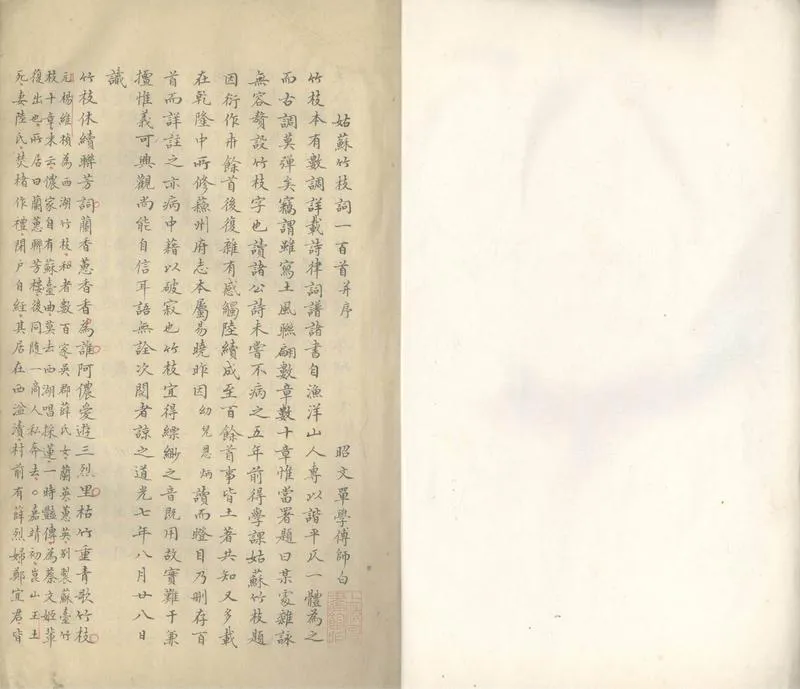 姑蘇竹枝詞一百首并序
昭文單學傅師白
竹枝本有數調詳載詩律詞譜諸書自漁洋山人專以諧平仄一體為之
而古調莫彈矣竊謂雖寫土風聯翩數章數十章惟當署題曰某處雜詠
無容贅設竹枝字也讀諸公詩未嘗不病之五年前得學課姑蘇竹枝題
因衍作卅餘首後復雜有感觸陸續成至百餘首事皆土著共知又多載
在乾隆中所修蘇州府志本屬易曉昨因幼兒恩炳讀而瞪目乃刪存百
首而詳註之亦病中藉以破寂也竹枝宜得縹緲之音既用故實難于兼
擅惟義可興觀尚能自信耳語無詮次閱者諒之道光七年八月廿八日
識
竹枝休續聯芳詞蘭香蕙香香為誰阿儂愛遊三烈里枯竹重青歌竹枝
元楊維楨為西湖竹枝和者數百家吳郡薛氏女蘭英蕙英別製蘇臺竹
枝十章末云儂家自有蘇臺曲莫去西湖唱採蓮一時豔傳為蔡文姬輩
復出也所居曰蘭蕙聯芳樓後同隨一商人私奔去○嘉靖初崑山王土
死妻陸氏焚楮作禮閉戶自經其居在西溢瀆村前有薛烈婦鄭宜君皆